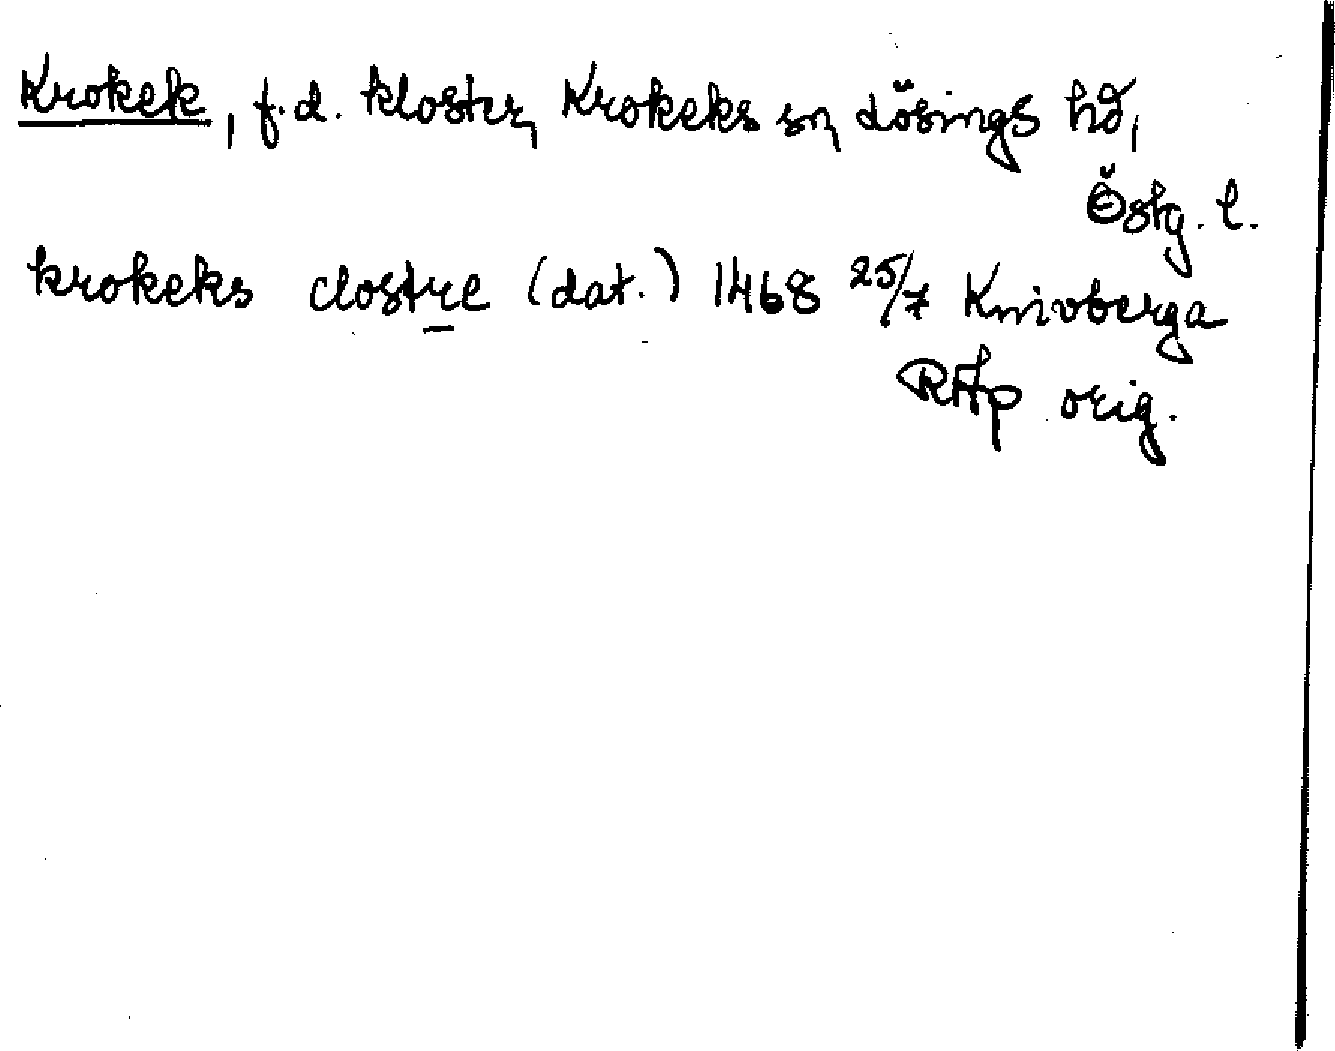 Krokek, f.d. kloster, Krokeks sn, Lösings hd,
Östg. l.
krokeks clostre (dat.) 1468 25/7 Knivberga
RAp orig.